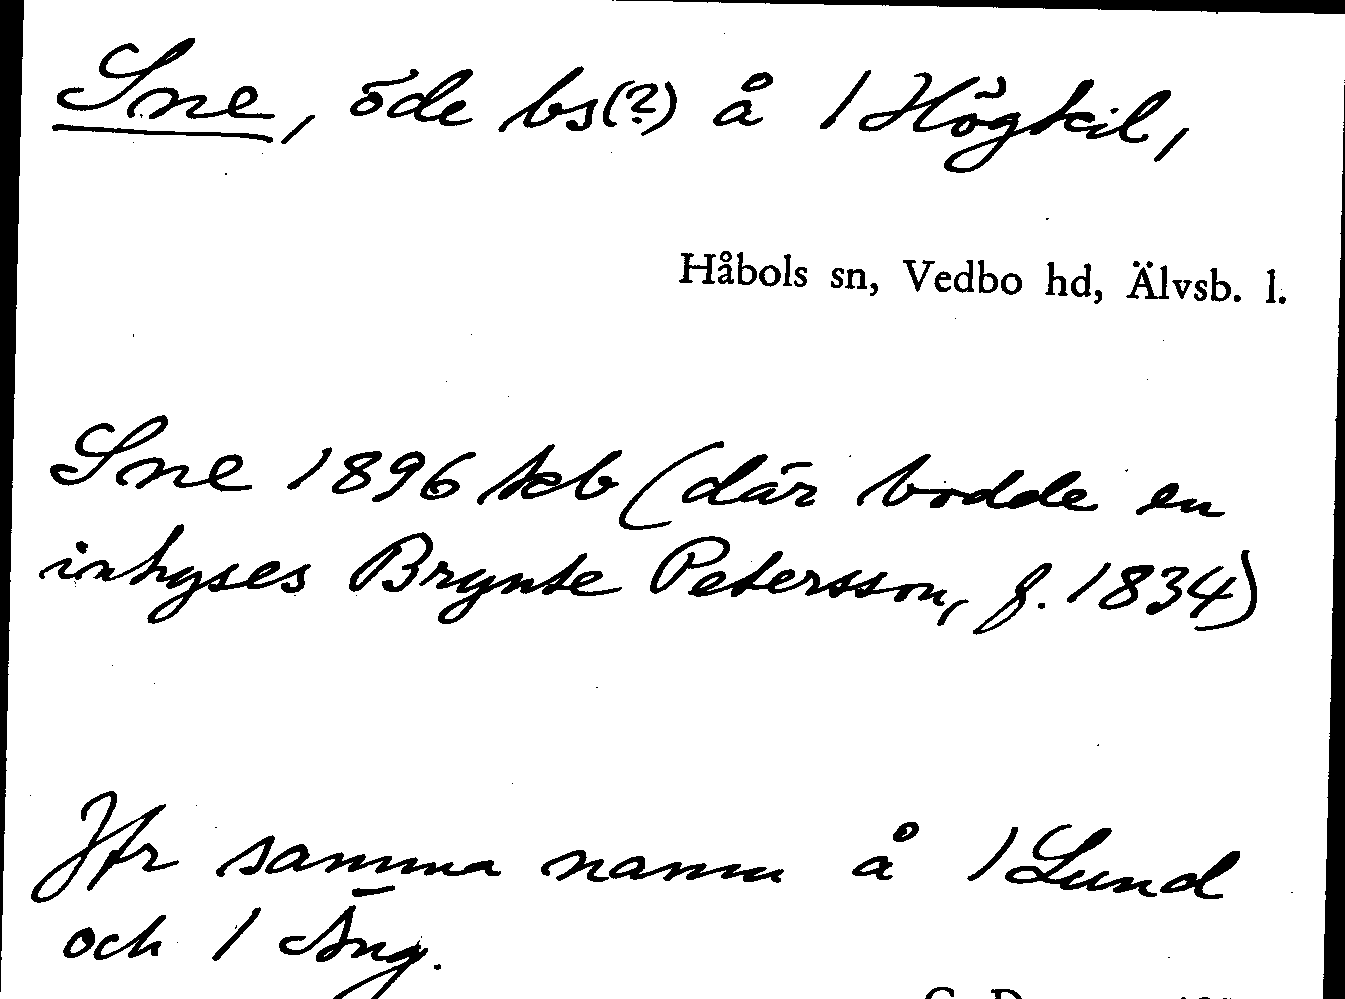 Sne, öde bs(?) å 1 Högkil,
Håbols sn, Vedbo hd, Älvsb. l.
Sne 1896 kb (där bodde en
inhyses Brynte Petersson, f. 1834)
Jfr samma namn å 1 Lund
och 1 Äng.